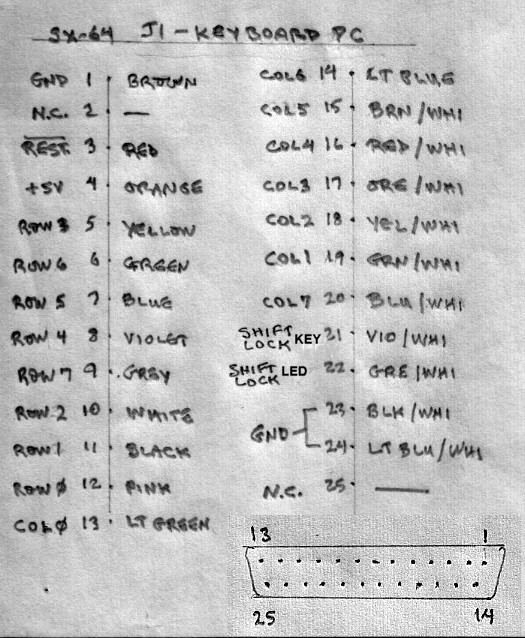 SX-64 J1-KEYBOARD PC
GND 1 BROWN
N.C. 2 —
REST 3 RED
+5V 4 ORANGE
ROW 3 5 YELLOW
ROW 6 6 GREEN
ROW 5 7 BLUE
ROW 4 8 VIOLET
ROW 7 9 GREY
ROW 2 10 WHITE
ROW 1 11 BLACK
ROW Ø 12 PINK
COL Ø 13 LT GREEN
COL6 14 LT BLUE
COL5 15 BRN/WHI
COL4 16 RED/WHI
COL3 17 ORE/WHI
COL2 18 YEL/WHI
COL1 19 GRN/WHI
COL7 20 BLU/WHI
SHIFT LOCK KEY 21 VIO/WHI
SHIFT LOCK LED 22 GRE/WHI
GND 23 BLK/WHI
24 LT BLU/WHI
N.C. 25 —
13 1
25 14